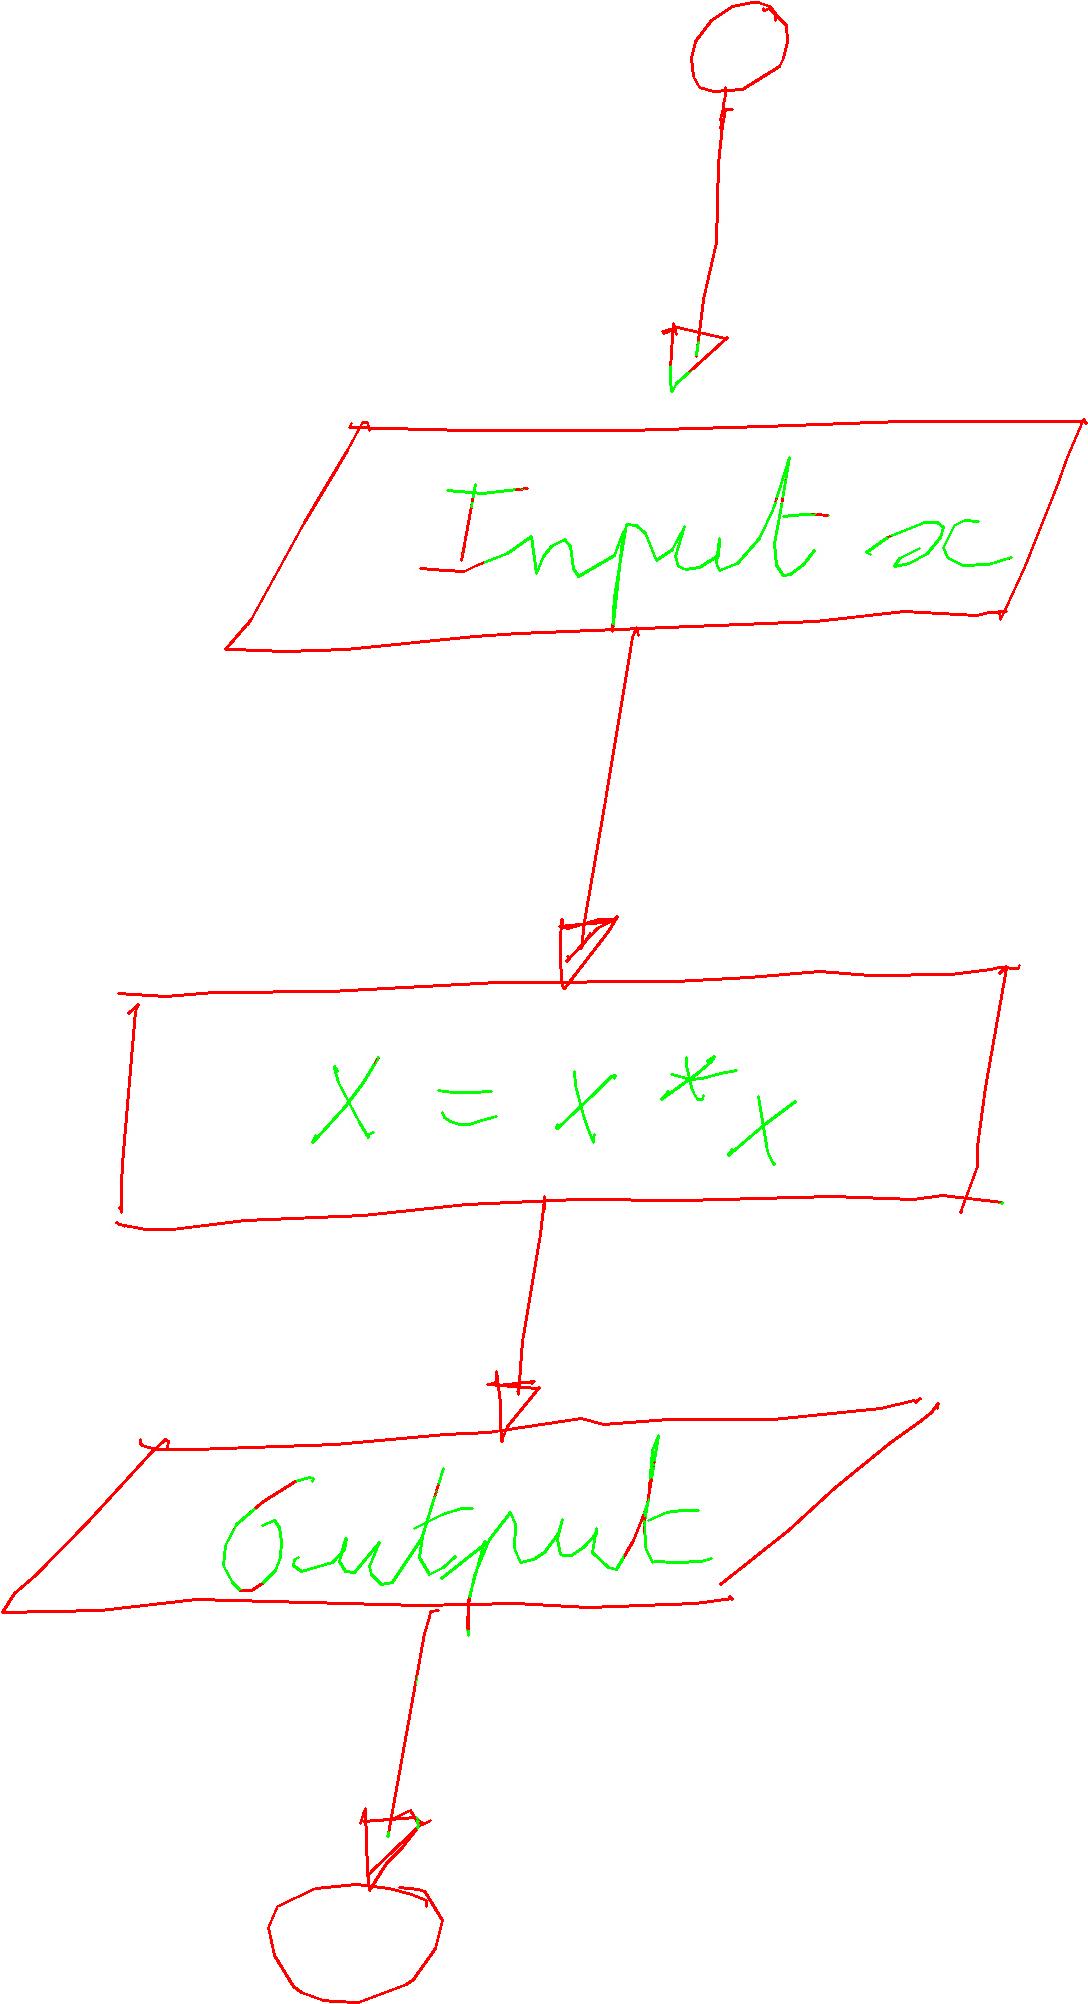 Input x
X = x * x
Output